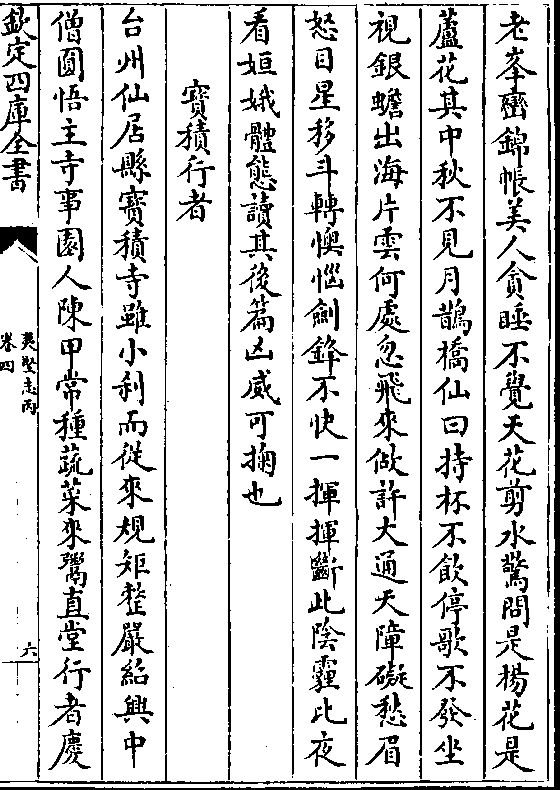 老峯巒錦帳美人貪睡不覺天花剪水驚問是楊花是
蘆花其中秋不見月鵲橋仙曰持杯不飲停歌不發坐
視銀蟾出海片雲何處忽飛來做許大通天障礙愁眉
怒目星移斗轉懊惱劍鋒不快一揮揮斷此陰霾比夜
看姮娥體態讀其後篇凶威可掬也
寶積行者
台州仙居縣寶積寺雖小刹而從來規矩整嚴紹興中
僧圓悟主寺事園人陳甲常種蔬菜來鬻直堂行者慶
欽定四庫全書
夷堅志丙
卷四
六